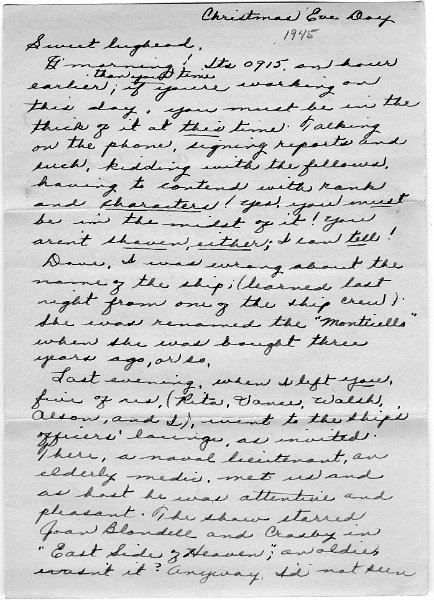 Christmas Eve Day
1945
Sweet lughead,
G'morning! Its 0915, an hour
than your time
earlier; if you're working on
this day, you must be in the
thick of it at this time. Talking
on the phone, signing reports and
such, kidding with the fellows,
having to contend with rank
and characters! Yes, you must
be in the midst of it! You
aren't shaven, either; I can tell!
Dave, I was wrong about the
name of the ship; (learned last
night from one of the ship crew).
She was renamed the "Monticello"
when she was bought three
years ago, or so.
Last evening, when I left you,
five of us, (Rita, Vance, Walsh,
Alson, and I), went to the ship's
officers' lounge, as invited.
There, a naval lieutenant, an
elderly medic, met us and
as host he was attentive and
pleasant. The show starred
Joan Blondell and Crosby in
"East Side of Heaven"; an oldie,
wasn't it? Anyway, I'd not seen